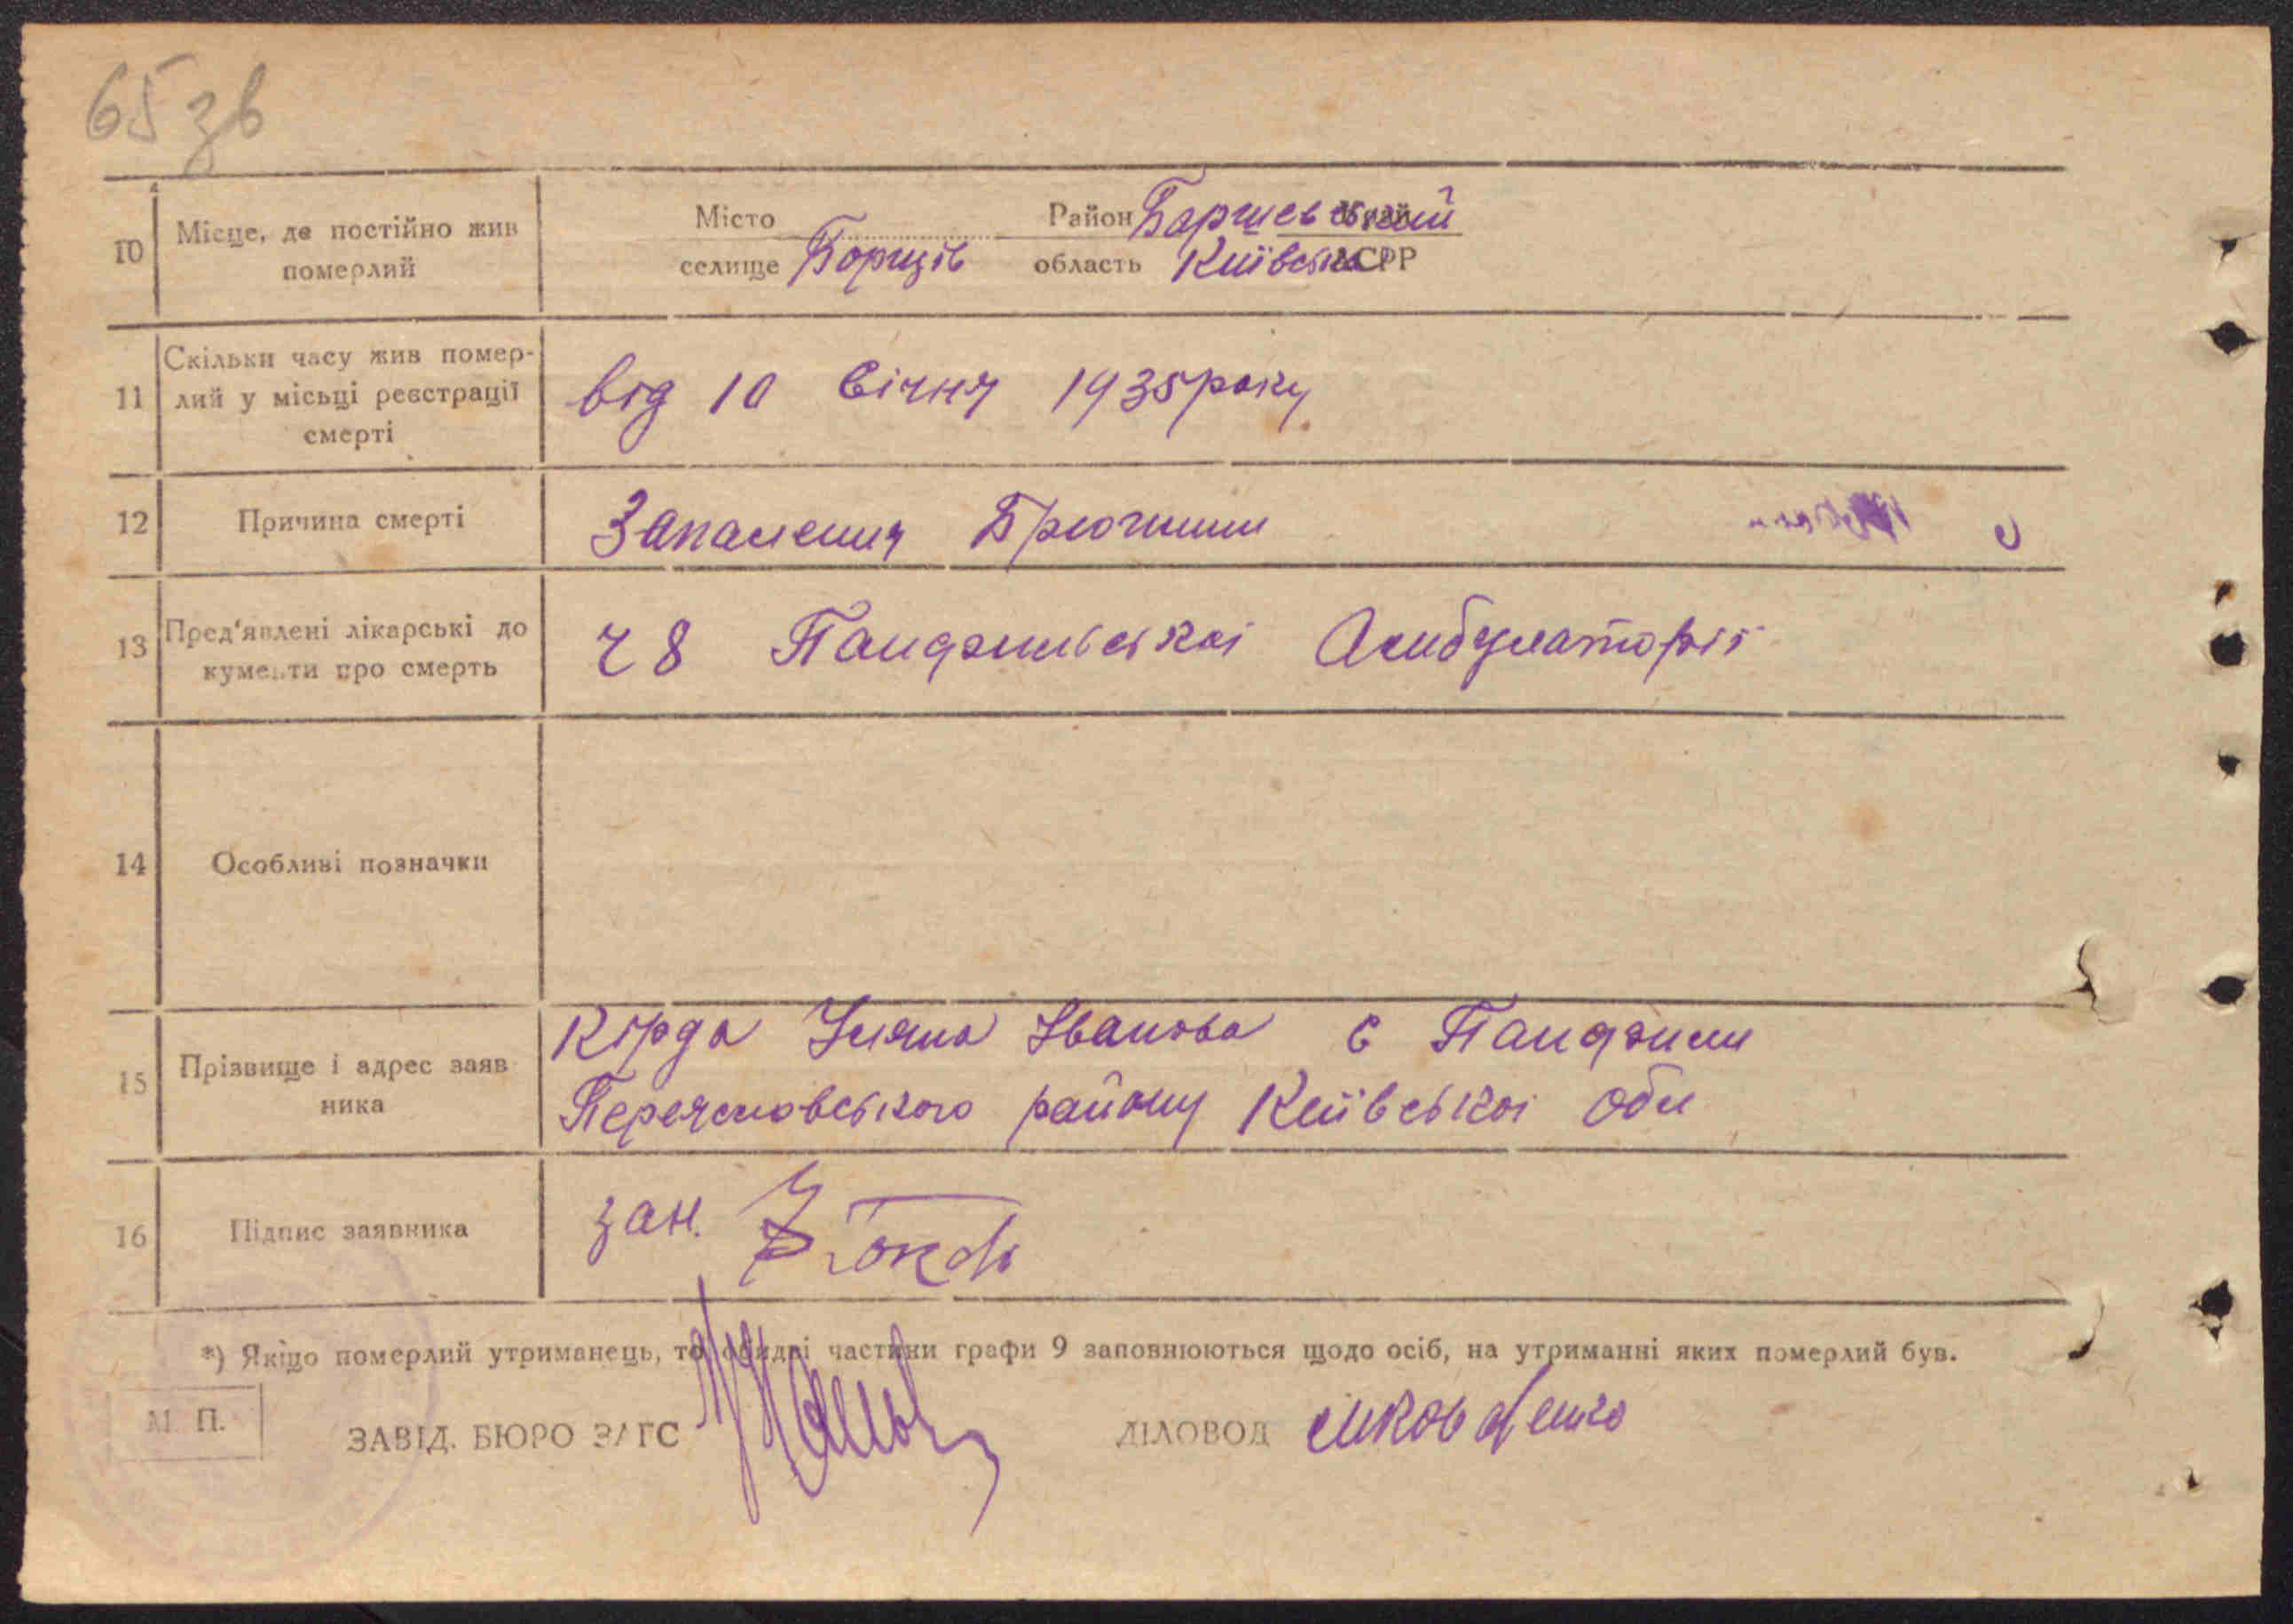 65 зв
10 Місце, де постійно жив померлий
Місто
селище Борщів
Район Борщевський Край
область Київська АСРР
11 Скільки часу жив помер-
лий у місьці реєстрації
смерті
від 10 Січня 1935 року
12 Причина смерті
Запалення Брюшини
13 Пред'явлені лікарські до
кументи про смерть
28 Пандзильської Амбулаторії
14 Особливі позначки
15 Прізвище і адрес заяв
ника
Кірда Уляна Іванова с
Переясловського району Київськоі Обл
16 Підпис заявника
зан.
*) Якщо померлий утриманець, то обидві частини графи 9 заповнюються щодо осіб, на утриманні яких померлий був.
М. П.
ЗАВІД. БЮРО ЗАГС
ДІЛОВОД